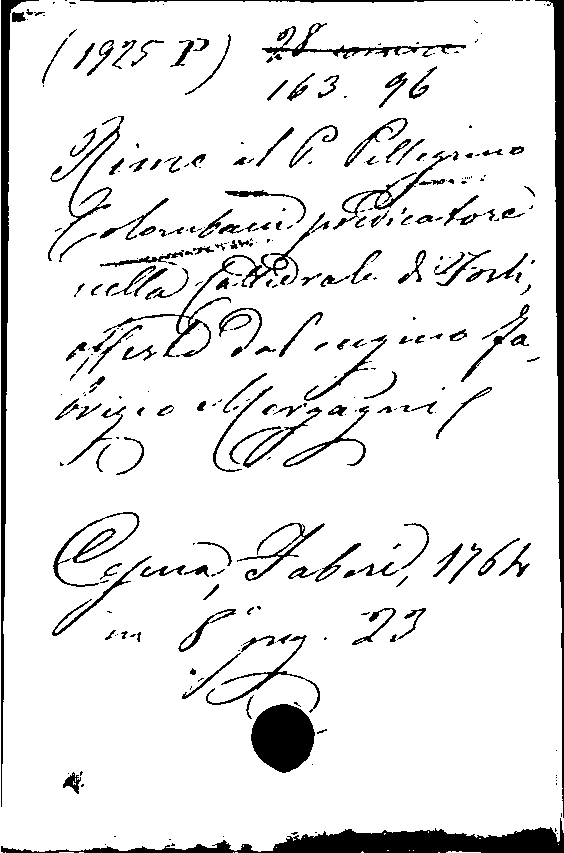 (1925 P) 28
163. 96
Rime al P. Pellegrino
Colombani predicatore
nella Cattedrale di Forlì,
offerte dal cugino Fa-
brizio Morgagni
Cesena, Faberi, 1764
in 8° pag. 23